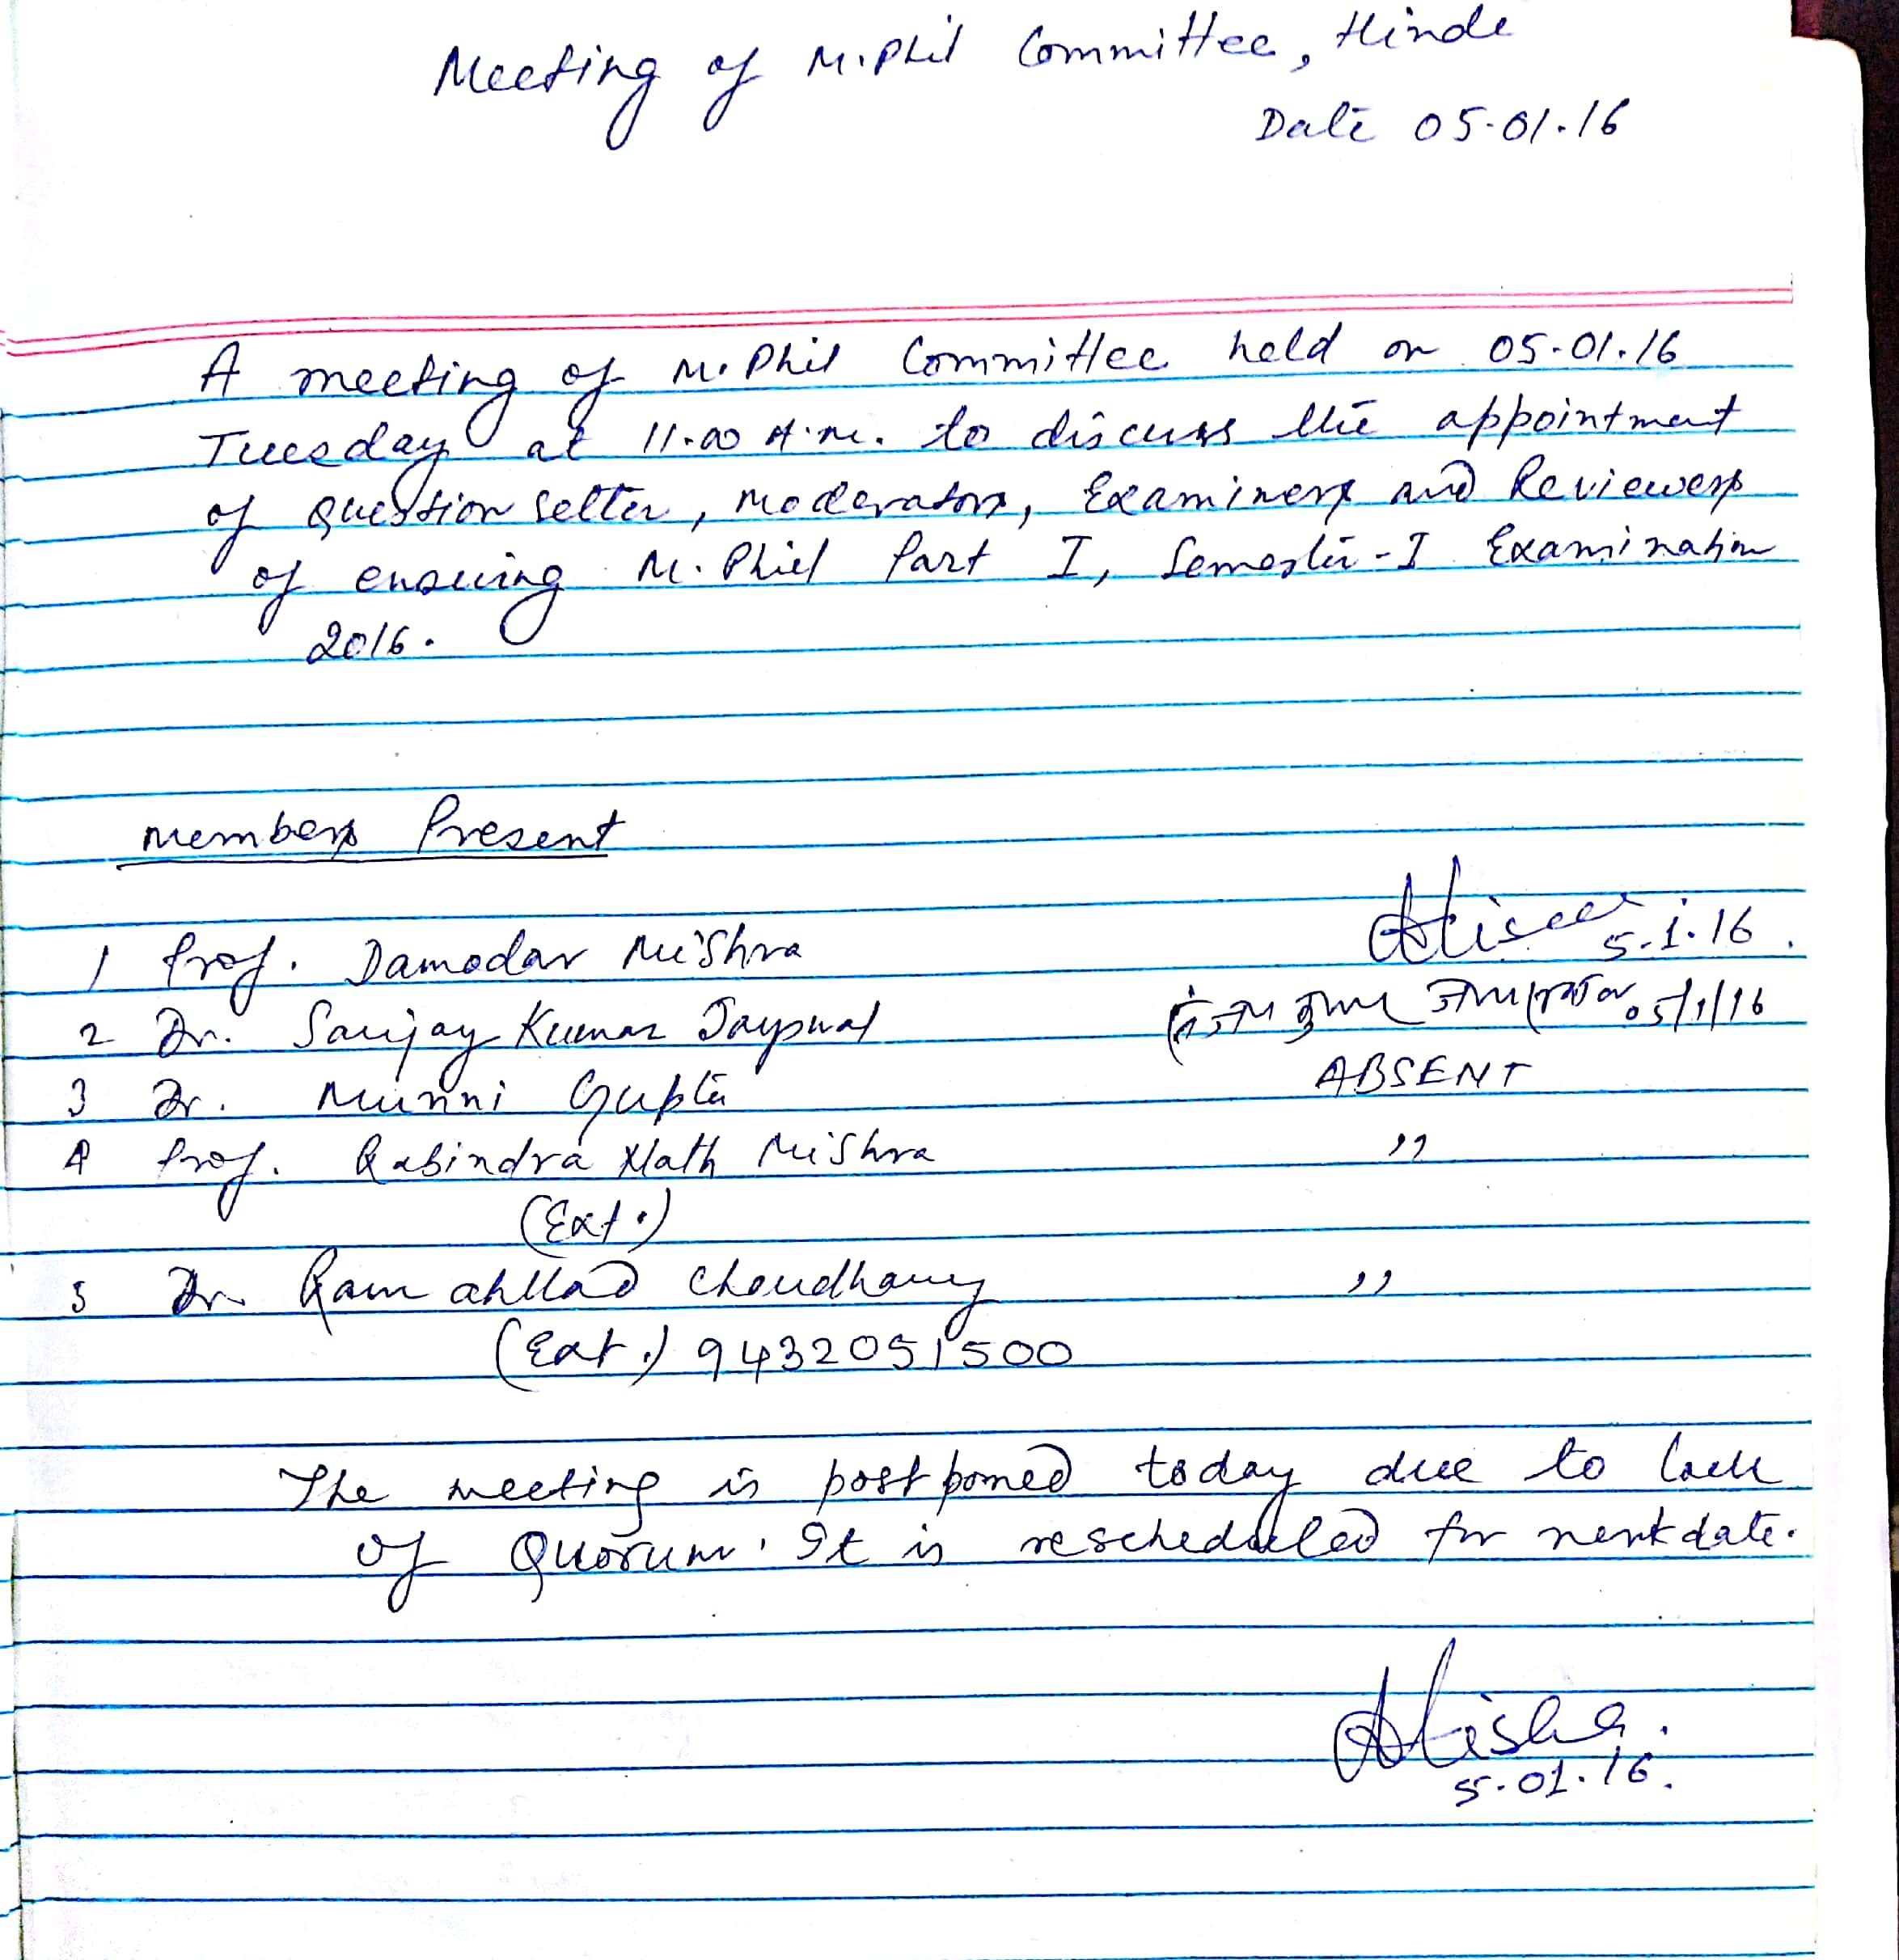 Meeting of M.Phil Committee, Hindi
Date 05.01.16
A meeting of M.Phil Committee held on 05.01.16
Tuesday at 11.00 A.M. to discuss the appointment
of question setter, moderators, Examiners and Reviewers
of ensuing M.Phil Part I, Semester-I Examination
2016.
Members Present
1 Prof. Damodar Mishra 5.1.16
2 Dr. Sanjay Kumar Jayswal 05/1/16
3 Dr. Munni Gupta ABSENT
4 Prof. Rabindra Nath Mishra "
(Ext.)
5 Dr. Ram ahllad Choudhary "
(Ext.) 9432051500
The meeting is postponed today due to lack
of Quorum. It is rescheduled for next date.
5.01.16.